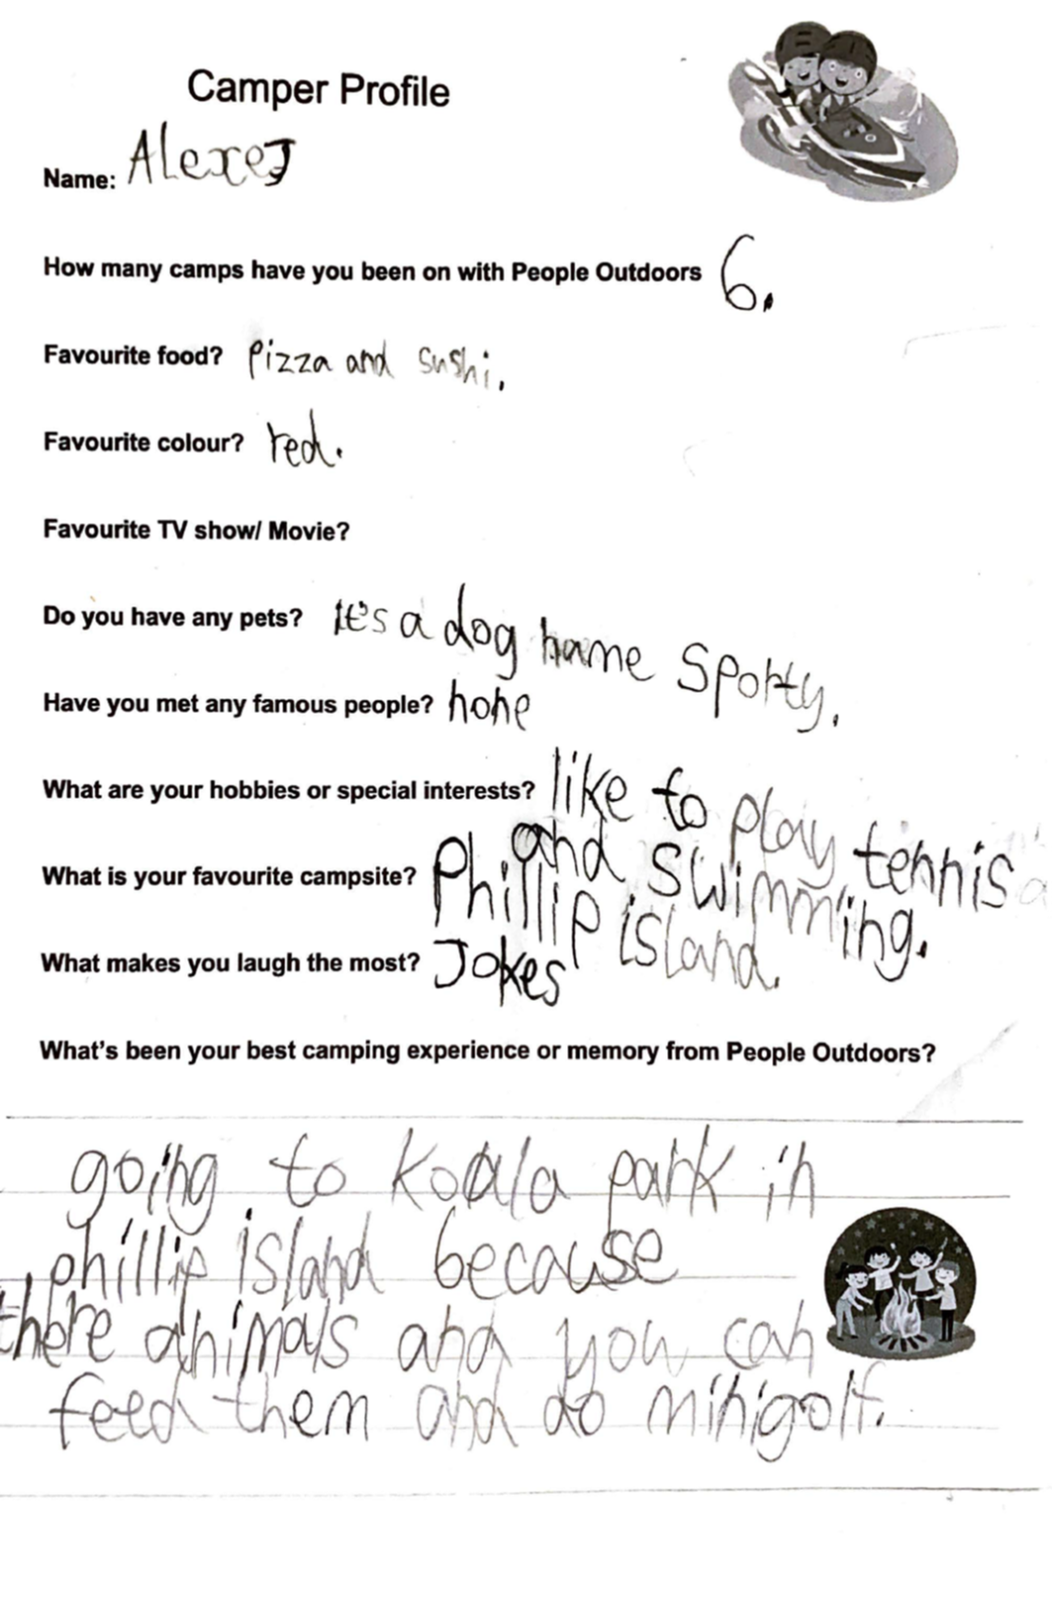 Camper Profile
Name: Alexej
How many camps have you been on with People Outdoors 6.
Favourite food? Pizza and sushi.
Favourite colour? red.
Favourite TV show/ Movie?
Do you have any pets? It's a dog name Sporty.
Have you met any famous people? none
What are your hobbies or special interests? like to play tennis
and swimming.
What is your favourite campsite? Phillip island.
What makes you laugh the most? Jokes
What's been your best camping experience or memory from People Outdoors?
going to koala park in
phillip island because
there animals and you can
feed them and do minigolf.